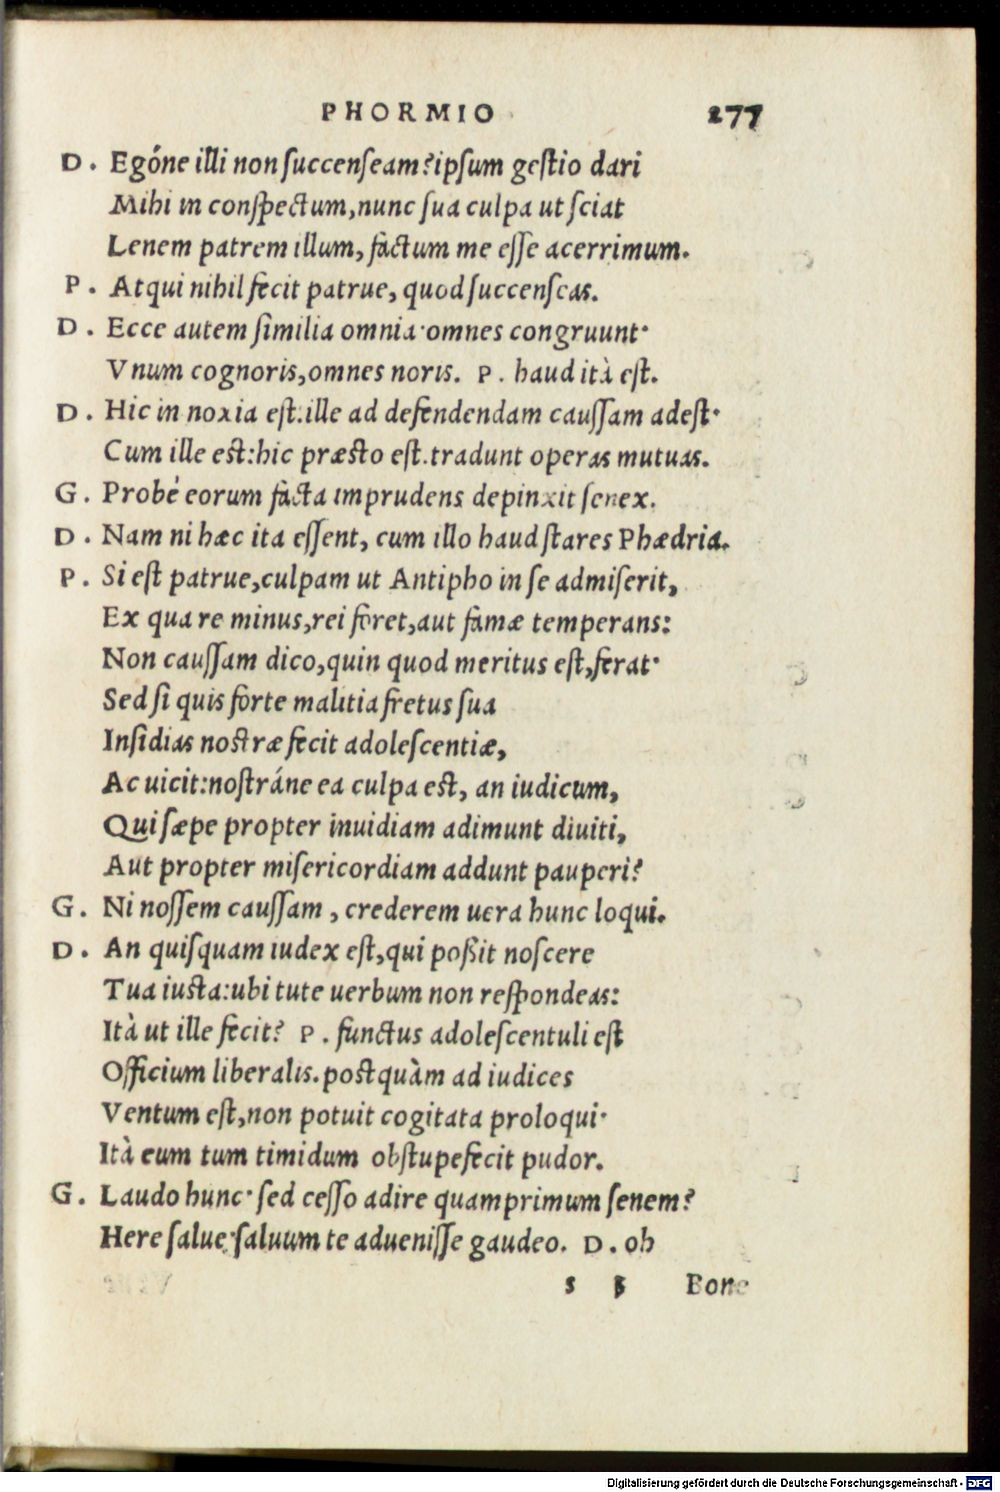 PHORMIO 277
D. Egóne illi non ſuccenſeam? ipſum geſtio dari
Mihi in conſpectum, nunc ſua culpa ut ſciat
Lenem patrem illum, factum me eſſe acerrimum.
P. Atqui nihil fecit patrue, quod ſuccenſeas.
D. Ecce autem ſimilia omnia· omnes congruunt·
Vnum cognoris, omnes noris. P. haud ità eſt.
D. Hic in noxia eſt. ille ad defendendam cauſſam adeſt·
Cum ille est: hic præsto eſt. tradunt operas mutuas.
G. Probé eorum facta imprudens depinxit ſenex.
D. Nam ni hæc ita eſſent, cum illo haud ſtares Phædria.
P. Si eſt patrue, culpam ut Antipho in ſe admiſerit,
Ex qua re minus, rei foret, aut famæ temperans:
Non cauſſam dico, quin quod meritus eſt, ferat·
Sed ſi quis forte malitia fretus ſua
Inſidias nostræ fecit adoleſcentiæ,
Ac uicit: noſtráne ea culpa est, an iudicum,
Qui ſæpe propter inuidiam adimunt diuiti,
Aut propter miſericordiam addunt pauperi?
G. Ni noſſem cauſſam, crederem uera hunc loqui.
D. An quiſquam iudex eſt, qui poßit noſcere
Tua iusta: ubi tute uerbum non reſpondeas:
Ità ut ille fecit? P. functus adoleſcentuli eſt
Officium liberalis. postquàm ad iudices
Ventum eſt, non potuit cogitata proloqui·
Ità eum tum timidum obſtupefecit pudor.
G. Laudo hunc· ſed ceſſo adire quamprimum ſenem?
Here ſalue· ſaluum te adueniſſe gaudeo. D. oh
s 3 Bone
Digitalisierung gefördert durch die Deutsche Forschungsgemeinschaft - DFG